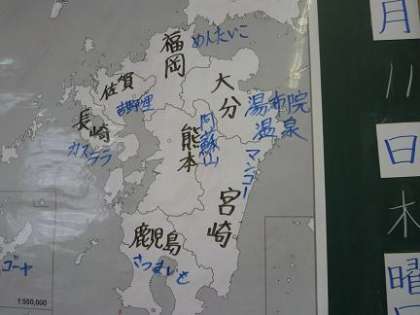 福岡
めんたいこ
佐賀
吉野里
大分
湯布院
温泉
長崎
カステラ
熊本
阿蘇山
マンゴー
宮崎
鹿児島
さつまいも
ゴーヤ
1:500,000
月
日
木
曜